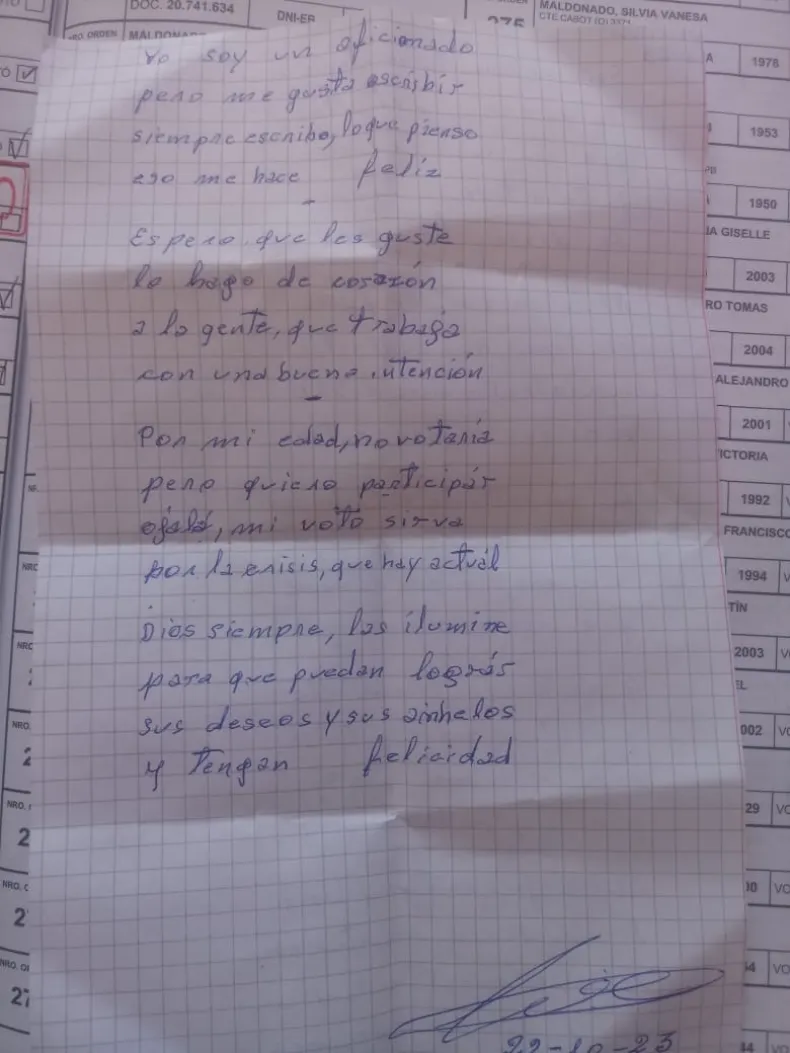 DOC. 20.741.634
DNI-ER
MALDONADO, SILVIA VANESA
NRO. ORDEN
CTE CABOT (O) 3371
1978
1953
1950
GISELLE
2003
RO TOMAS
2004
ALEJANDRO
2001
VICTORIA
1992
FRANCISCO
1994
TÍN
2003
EL
002
29
Yo soy un aficionado
pero me gusta escribir
siempre escribo, lo que pienso
eso me hace feliz
-
Espero que les guste
lo hago de corazón
a la gente, que trabaja
con una buena intención
-
Por mi edad, no votaría
pero quiero participár
ojalá, mi voto sirva
por la crisis, que hay actuál
Dios siempre, los ilumine
para que puedan lográr
sus deseos y sus ainhelos
y tengan felicidad
22-10-23
NRO.
NRO.
NRO.
2